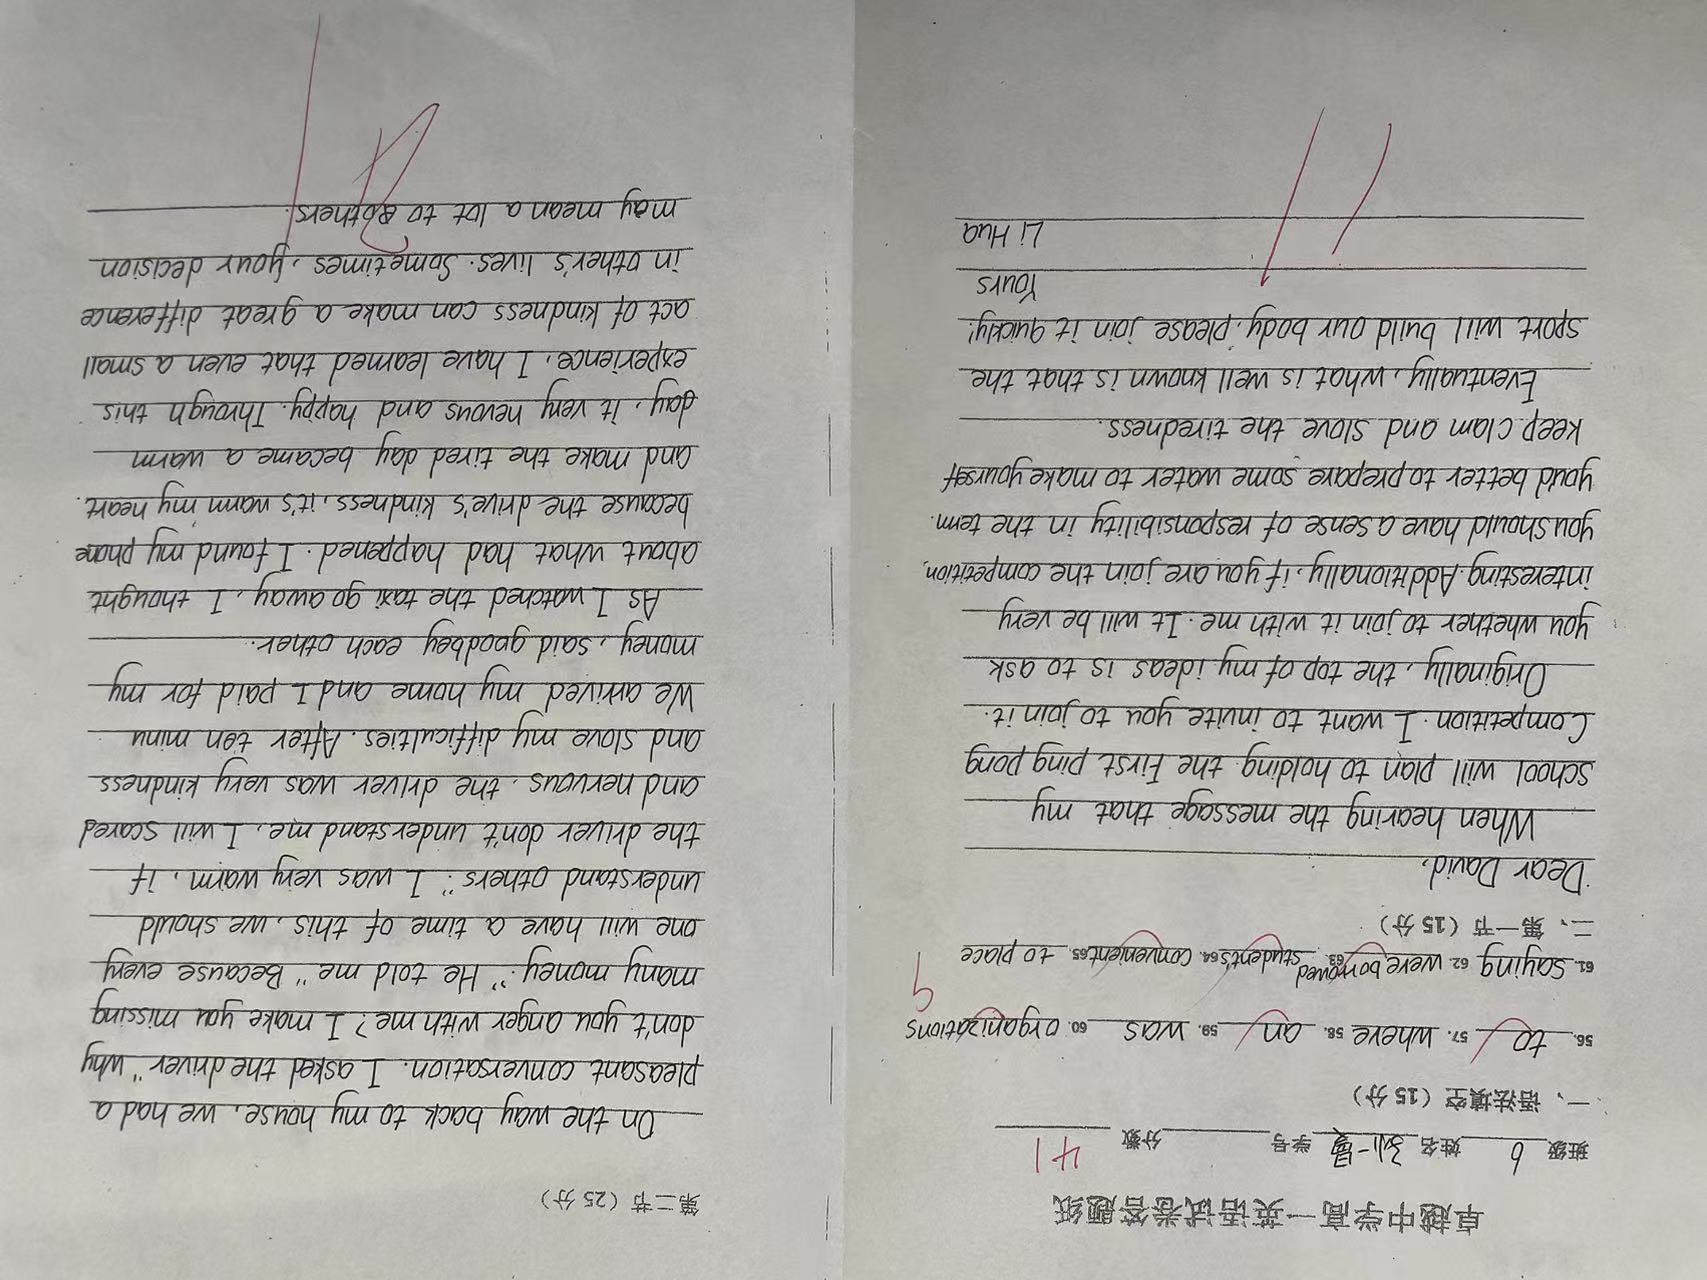 卓越中学高一英语试卷答题纸
班级 6 姓名 学号 分数 41
一、语法填空（15分）
56. to 57. where 58. an 59. was 60. organizations
61. saying 62. were borrowed 63. student's 64. convenient 65. to place
9
二、第一节（15分）
Dear David,
When hearing the message that my
school will plan to holding the First ping pong
Competition. I want to invite you to join it.
Originally, the top of my ideas is to ask
you whether to join it with me. It will be very
interesting. Additionally, if you are join the competition,
you should have a sense of responsibility in the term.
you'd better to prepare some water to make yourself
keep clam and slove the tiredness.
Eventually, what is well known is that the
sport will build our body, please join it quickly!
Yours
Li Hua
11
第二节（25分）
On the way back to my house, we had a
pleasant conversation. I asked the driver "why
don't you anger with me? I make you missing
many money." He told me "Because every
one will have a time of this, we should
understand others". I was very warm, if
the driver don't understand me, I will scared
and nervous. the driver was very kindness
and slove my difficulties. After ten minu
We arrived my home and I paid for my
money, said goodbey each other.
As I watched the taxi go away, I thought
about what had happened. I found my phone
because the drive's kindness, it's warm my heart.
and make the tired day became a warm
day, it very nevous and happy. Through this
experience, I have learned that even a small
act of kindness can make a great difference
in other's lives. Sometimes, your decision
may mean a lot to others.